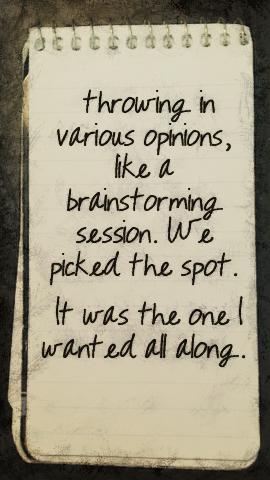 throwing in
various opinions,
like a
brainstorming
session. We
picked the spot.
It was the one I
wanted all along.